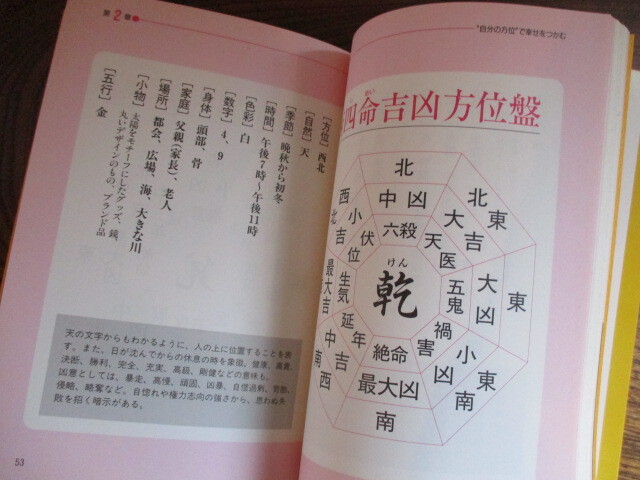 第2章
[方位] 西北
[自然] 天
[季節] 晩秋から初冬
[時間] 午後7時〜午後11時
[色彩] 白
[数字] 4、9
[身体] 頭部、骨
[家庭] 父親(家長)、老人
[場所] 都会、広場、海、大きな川
[小物] 太陽をモチーフにしたグッズ、鏡、
丸いデザインのもの、ブランド品
[五行] 金
天の文字からもわかるように、人の上に位置することを表
す。また、日が沈んでからの休息の時を象徴。健康、
決断、勝利、完全、充実、高級、剛健などの意味も。
凶意としては、暴走、高慢、頑固、凶暴、自信過剰、
侵略、略奪など。自惚れや権力志向の強さから、思わぬ失
敗を招く暗示がある。
53
"自分の方位"で幸せをつかむ
四命吉凶方位盤
北
中凶
六殺
北東
大吉
天医
東
大凶
五鬼
東南
小凶
禍害
南
最大凶
絶命
南西
中吉
延年
最大吉
生気
西北
小吉
伏位
けん
乾